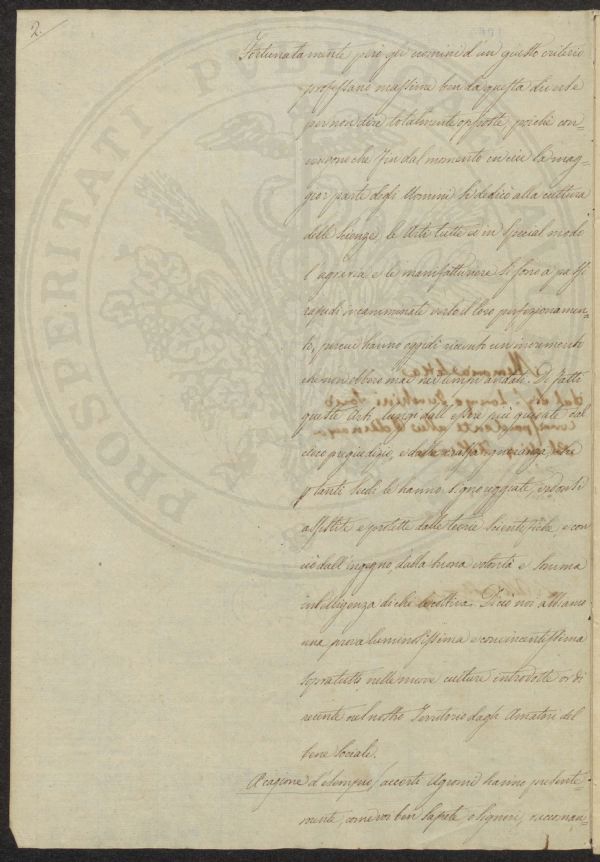 2.
Fortunatamente però gli uomini d'un giusto criterio
professano massime ben da questa diverse
per non dire totalmente opposte, poichè con-
vengono che fin dal momento in cui la mag-
gior parte degli Uomini si dedicò alla cultura
delle Scienze, le Arti tutte ed in Special modo
l'agraria e le manifatturiere si sono a passi
rapidi incamminate verso il loro perfezionamen-
to, perciè hanno oggidì ricevuto un incremento
che non ebbero mai nei tempi andati. Di fatti
queste Arti, lungi dall'essere più guidate dal
cieco pregiudizio, e dalla crassa ignoranza, che
p tanti Secoli le hanno signoreggiate, vedonsi
assistite e protette dalle teorie Scientifiche, e con
ciò dall'ingegno, dalla buona volontà e Somma
intelligenza di chi le coltiva. Di ciò noi abbiamo
una prova luminosissima e convincentissima
sopratutto nelle nuove culture introdotte or di
recente nel nostro Territorio dagli Amatori del
bene Sociale.
A cagione d'esempio, accorti Agronomi hanno presente-
mente, come voi ben Sapete o Signori,
PROSPERITATI PUBLICAE